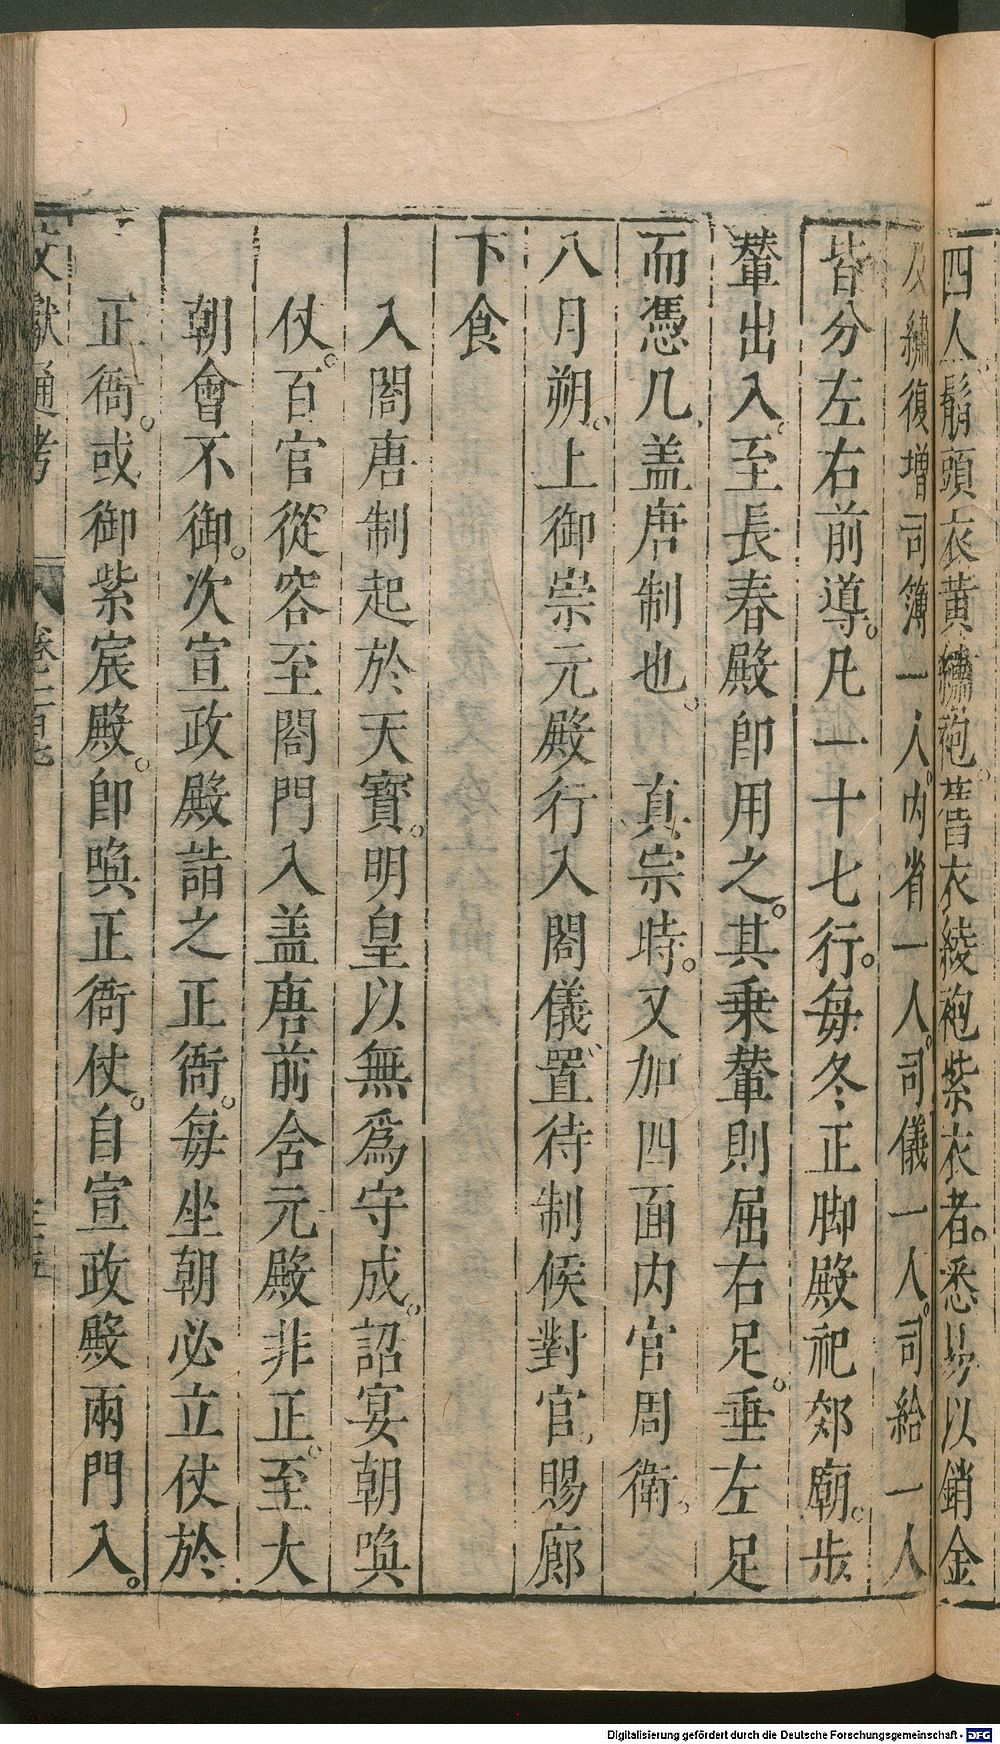 四人髯頭衣黄繡袍。昔衣綾袍紫衣者。悉易以銷金
及繡復增司簿一人。内省一人。司儀一人。司給一人
皆分左右前導。凡一十七行。每冬正脚殿祀郊廟。步
輦出入。至長春殿即用之。其乗輦則屈右足。垂左足
而憑几。盖唐制也。真宗時。又加四面内官周衛。
八月朔。上御崇元殿行入閤儀。置待制候對官。賜廊
下食
入閤唐制起於天寳。明皇以無爲守成。詔宴朝喚
仗。百官從容至閤門入盖唐前含元殿非正。至大
朝會不御。次宣政殿詣之正衙。每坐朝必立仗於
正衙。或御紫宸殿。即喚正衙仗。自宣政殿兩門入。
文獻通考
Digitalisierung gefördert durch die Deutsche Forschungsgemeinschaft - DFG